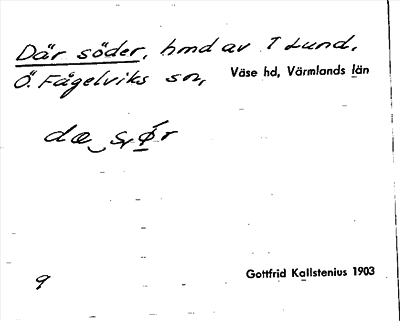 Där söder, hmd av T Lund,
Ö. Fågelviks sn, Väse hd, Värmlands län
9
Gottfrid Kallstenius 1903